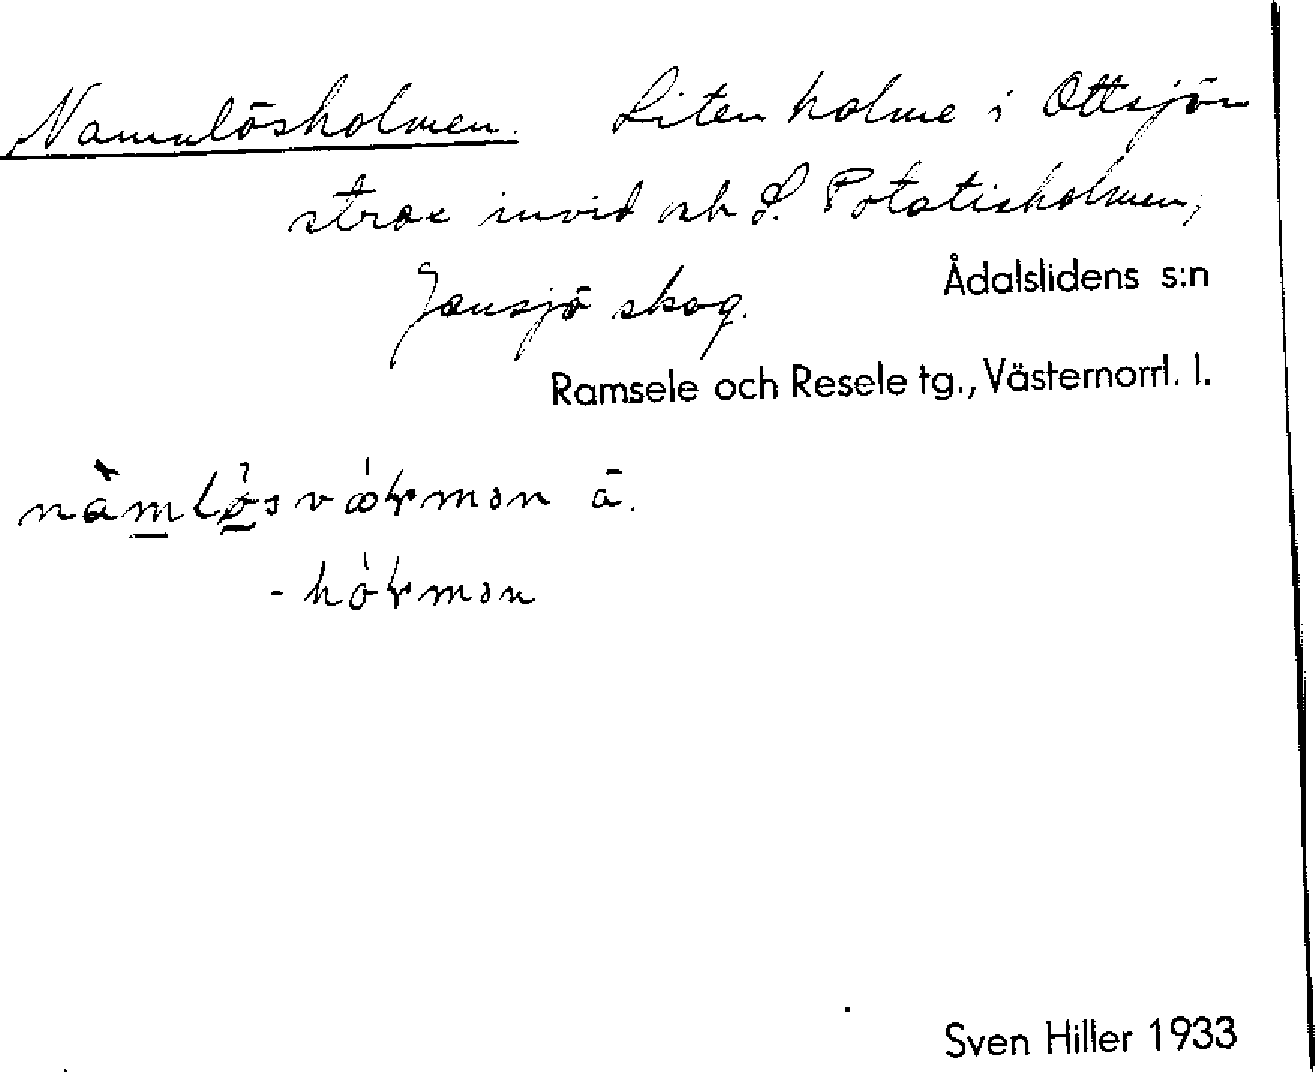 Namnlösholmen. Liten holme i Ottsjön
strax invid och S. Potatisholmen,
Jansjö skog. Ådalslidens s:n
Ramsele och Resele tg., Västernorrl. l.
ā.
Sven Hiller 1933